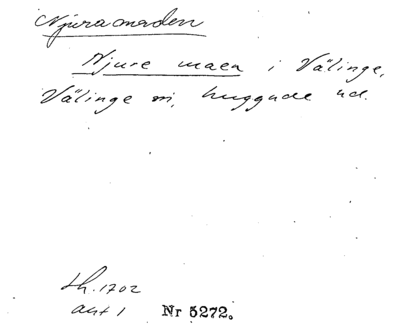 Njuramaden
Njure maen i Välinge,
Välinge sn, huggude ud.
Lh. 1702
akt 1 Nr 5272.